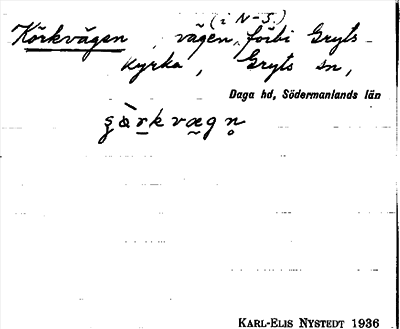 (i N-S.)
Körkvägen, vägen förbi Gryts
kyrka, Gryts sn,
Daga hd, Södermanlands län
KARL-ELIS NYSTEDT 1936